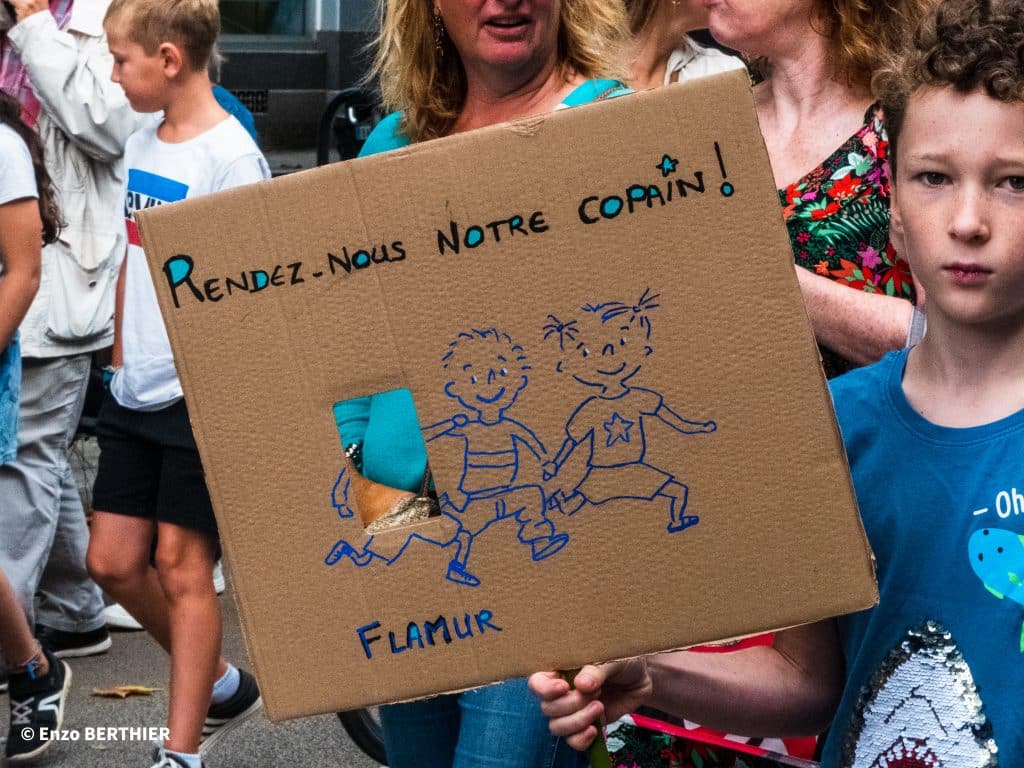 RENDEZ-NOUS NOTRE COPAIN!
FLAMUR
- Oh
© Enzo BERTHIER